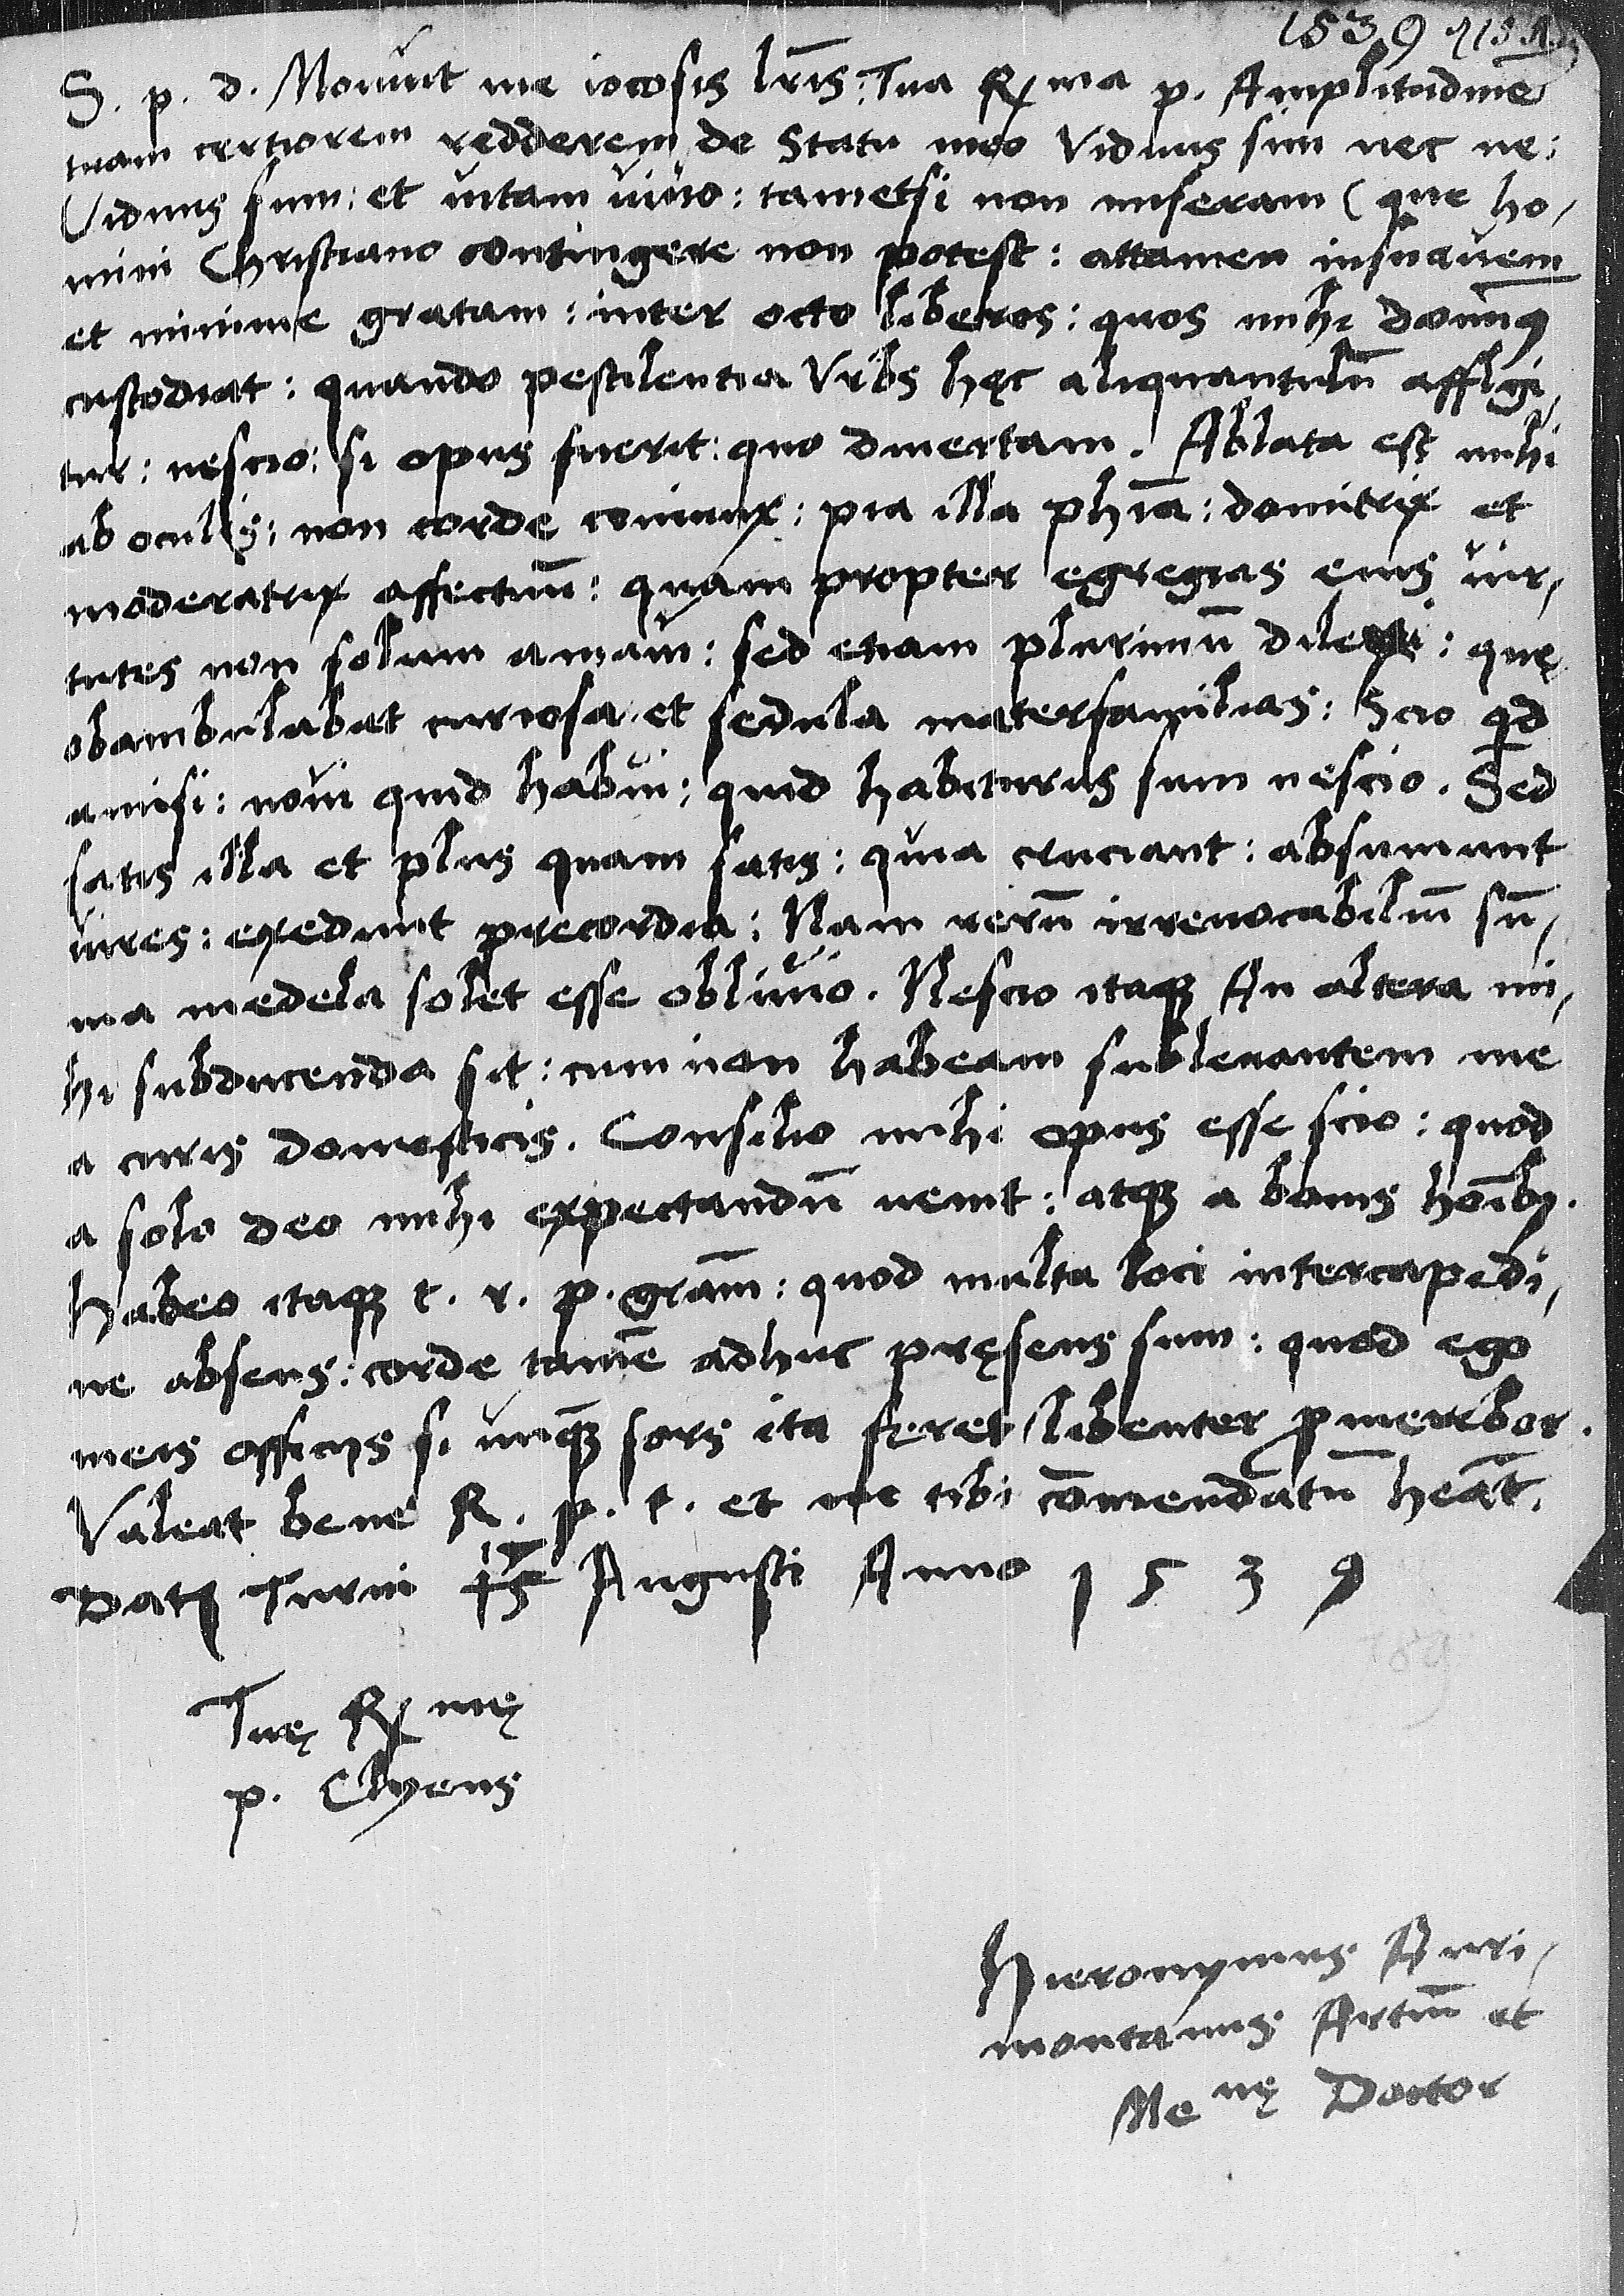 1539
S. p. d. Monuit me iocosis lr̄is: Tua Rma p. Amplitudinē
tuam certiorem redderem de Statu meo Viduus sim nec ne:
Viduus sum: et uitam uiuo: tametsi non miseram (que ho,
mini Christiano contingere non potest: attamen insuauem
et minime gratam: inter octo liberos: quos mihi dominus
custodiat: quando pestilentia Vrbs hęc aliquantulū affligi,
tur: nescio: si opus fuerit: quo diuertam. Ablata est mihi
ab oculis: non corde coniunx: pia illa phīa: domitrix et
moderatrix affectuū: quam propter egregias eius uir,
tutes non solum amaui: sed etiam plurimū dilexi: quę
obambulabat curiosa et sedula materfamilias: Scio qd
amisi: noui quid habui: quid habiturus sum nescio. Sed
satis illa et plus quam satis: quia cruciant: absumunt
uires: exedunt precordia: Nam rerū irreuocabiliū sū,
ma medela solet esse obliuio. Nescio itaq3 An altera mi,
hi subducenda sit: cum non habeam subleuantem me
a curis domesticis. Consilio mihi opus esse scio: quod
a solo deo mihi expectandū uenit: atq3 a bonis hoīb3.
Habeo itaq3 t. r. p. grām: quod multa loci intercapedi,
ne absens: corde tamē adhuc pręsens sum: quod ego
meis officijs si unq̄3 sors ita feret, libenter promerebor.
Valeat bene R. p. t. et me tibi cōmendatū heāt.
Dat Turini 15 Augusti Anno 1539
189
Tuę Rmę
p. Clyens
Hieronymus Auri,
montanus Artiū et
Menę Doctor